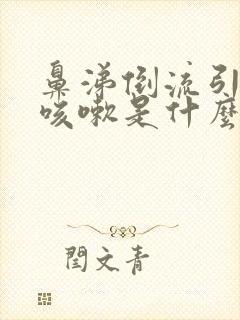 鼻涕倒流引
咳嗽是什麼
閆文青